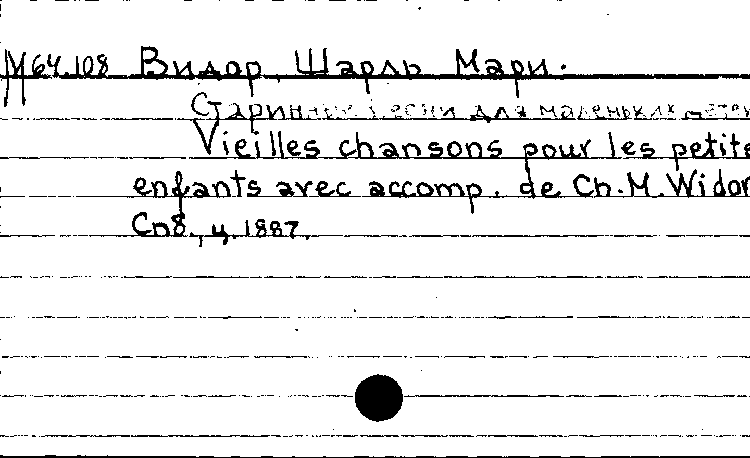 М64.108 Видор, Шарль Мари.
Старинные песни для маленьких детей
Vieilles chansons pour les petits
enfants avec accomp. de Ch. M. Widor
Спб., ц. 1887.